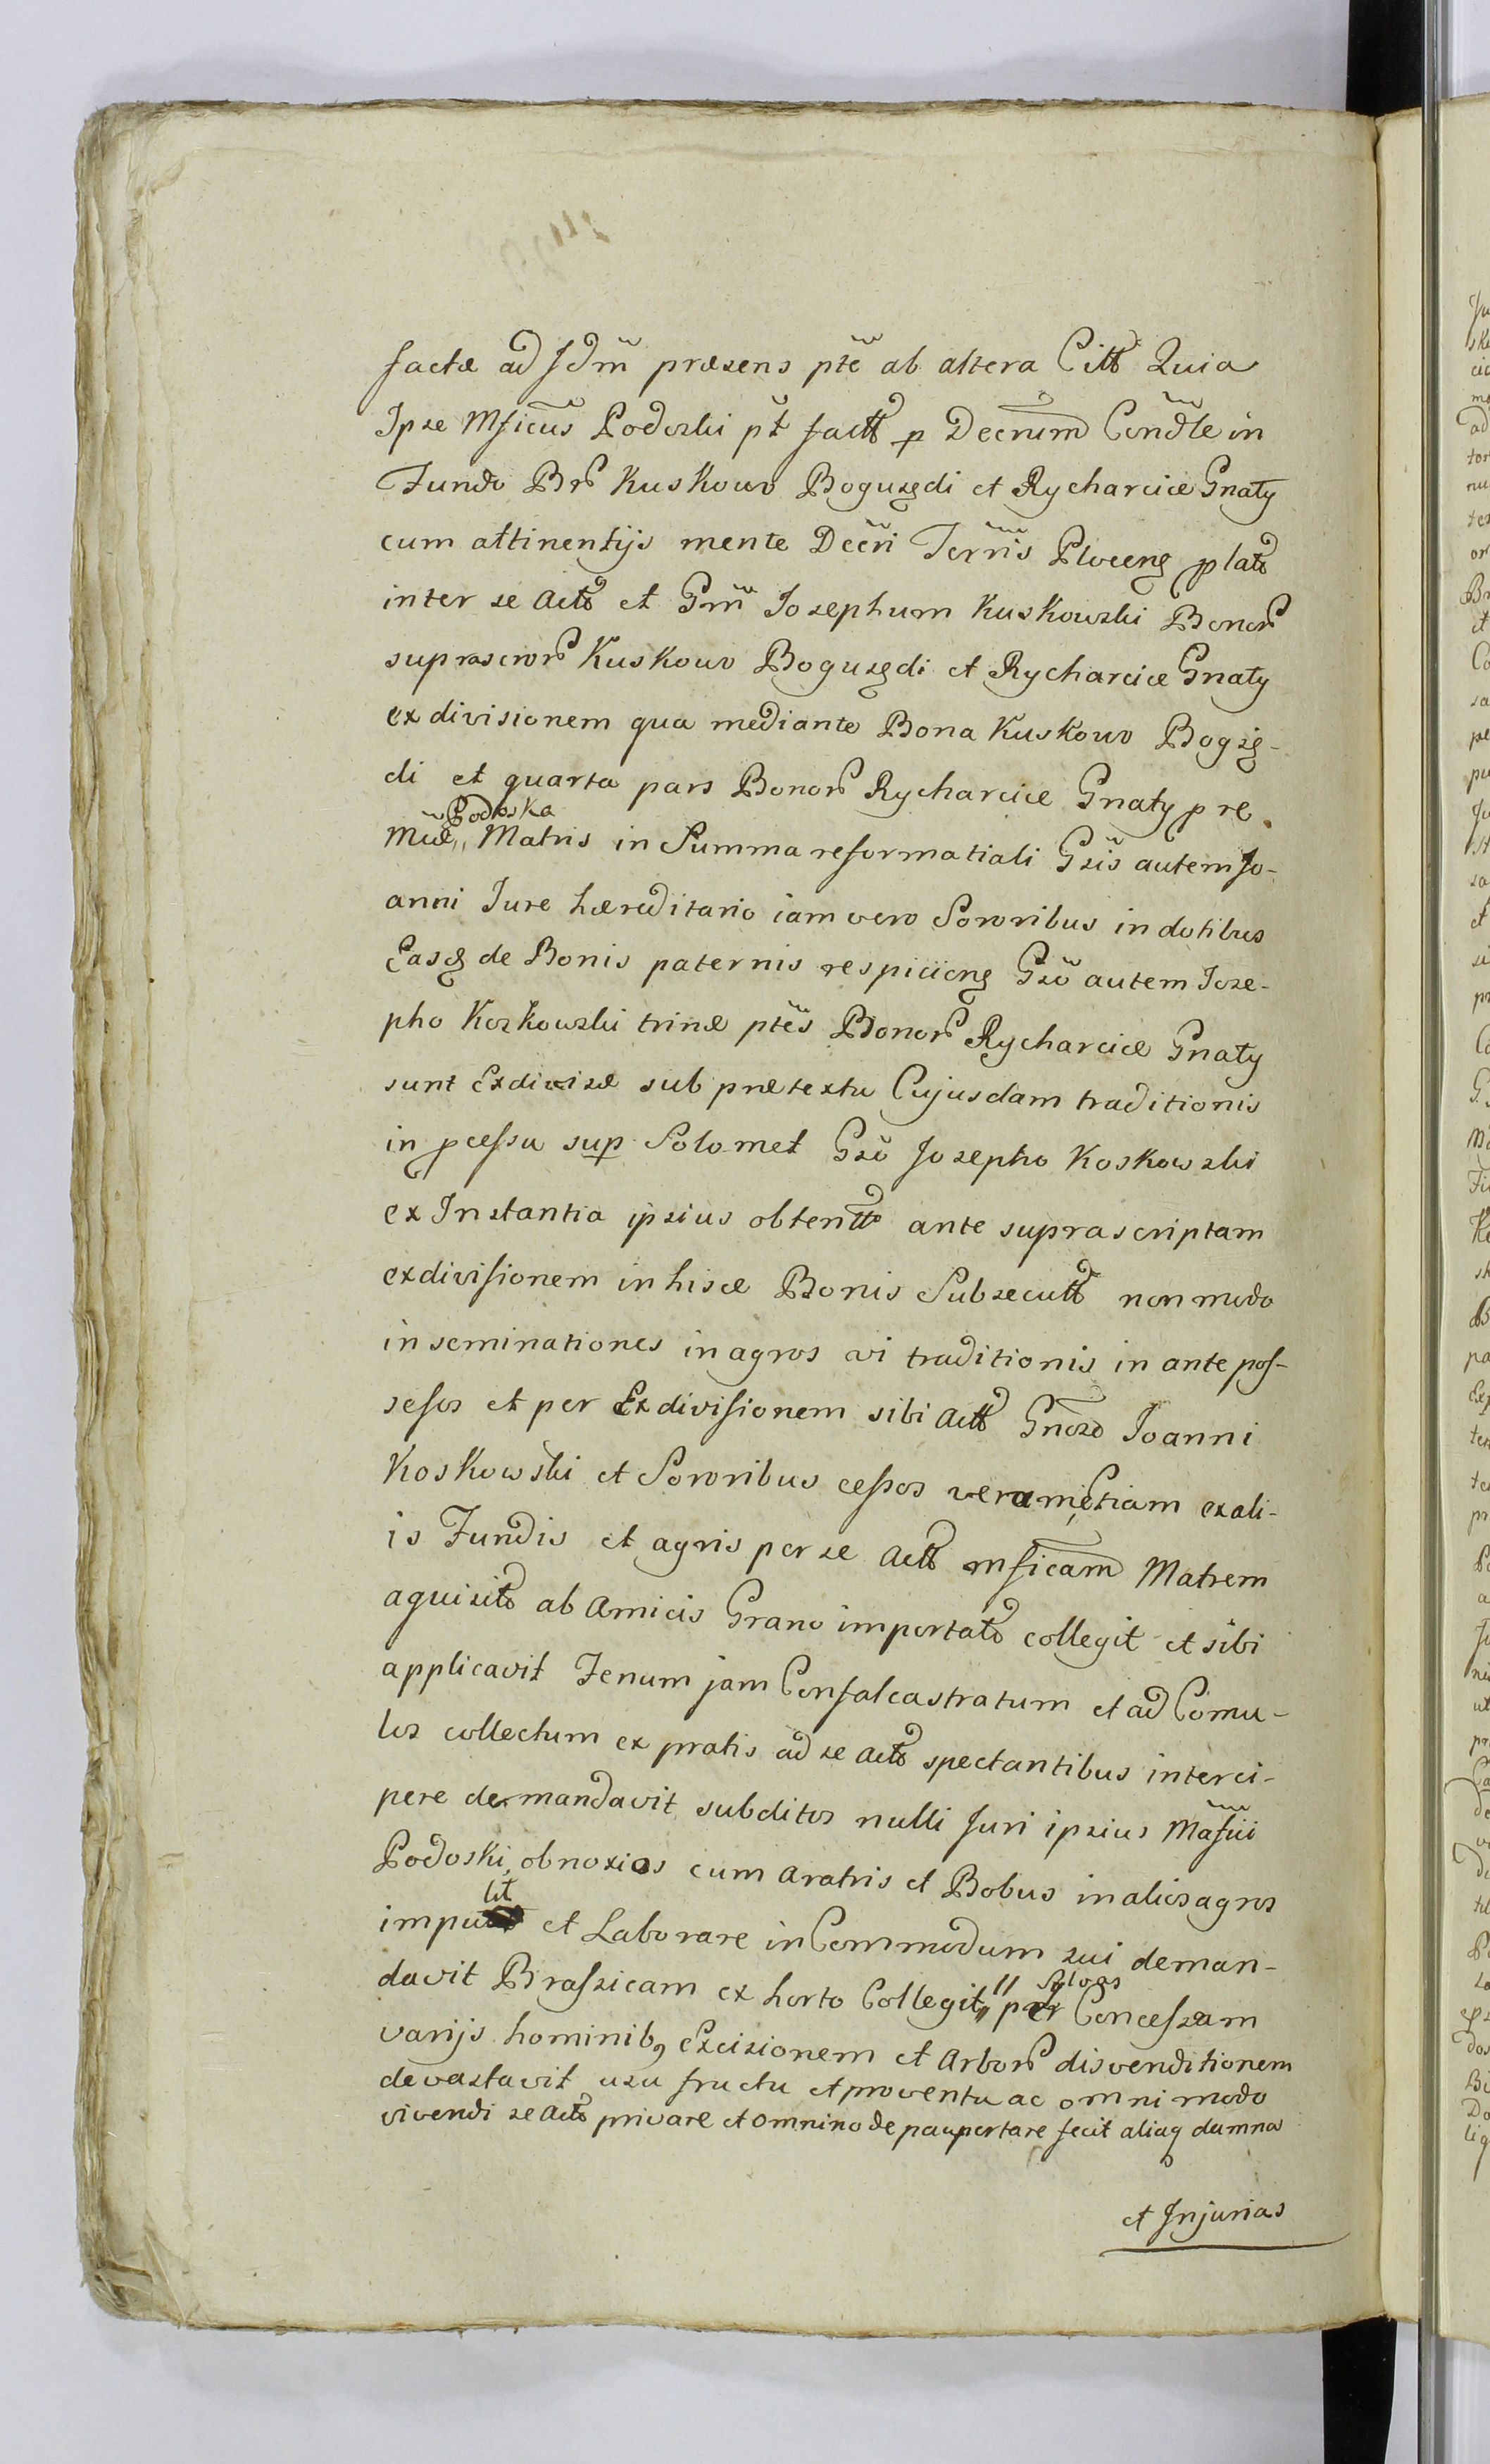 factæ ad Jdm̃ præsens pte ab altera Citt Quia
Ipse Mficus Podoski pt factt p Decrum Condle in
Fundo Br Kuskowo Bogusędi et Rycharcice Gnaty
cum attinentijs mente Decri Terris Ploceng p lato
inter se Acto et Gm̃ Josephum Kuskowski Bonor
suprascror Kuskowo Bogusędi et Rycharcice Gnaty
exdivisionem qua mediante Bona Kuskowo Bogsę-
di et quarta pars Bonor Rycharcice Gnaty p re
Mcæ Podoska Matris in Summa reformatiali Gsis autem Jo-
anni Jure hæreditario iam vero Sororibus in dotibus
Easq de Bonis paternis respicieng Gso autem Jose-
pho Koskowski trinæ ptes Bonor Rycharcice Gnaty
sunt Exdivisæ sub prætextu Cujusdam traditionis
in pcessu sup Solo met Gso Josepho Koskowski
ex Instantia ipsius obtentt ante suprascriptam
exdivisionem in hisce Bonis Subsecutt non modo
inseminationes in agros vi traditionis in ante pos-
sesos et per Exdivisionem sibi Actt Gnoso Joanni
Koskowski et Sororibus cessos verum Etiam ex ali-
is Fundis et agris per se Actt mficam Matrem
aquisito ab Amicis Grano importato collegit et sibi
applicavit Fenum jam Confalcastratum et ad Comu-
los collectum ex pratis ad se Acto spectantibus interci-
pere demandavit subditos nulli Juri ipsius Mafici
Podoski obnoxios cum Aratris et Bobus in alios agros
impulit et Laborare in Commodum sui deman-
davit Brassicam ex horto Collegit Sylvas per Concessam
varijs hominib9 Excisionem et Arbor disvenditionem
devastavit usu fructu et proventu ac omni modo
vivendi se Acto privare et omnino depaupertare fecit aliaq damna
et Injurias